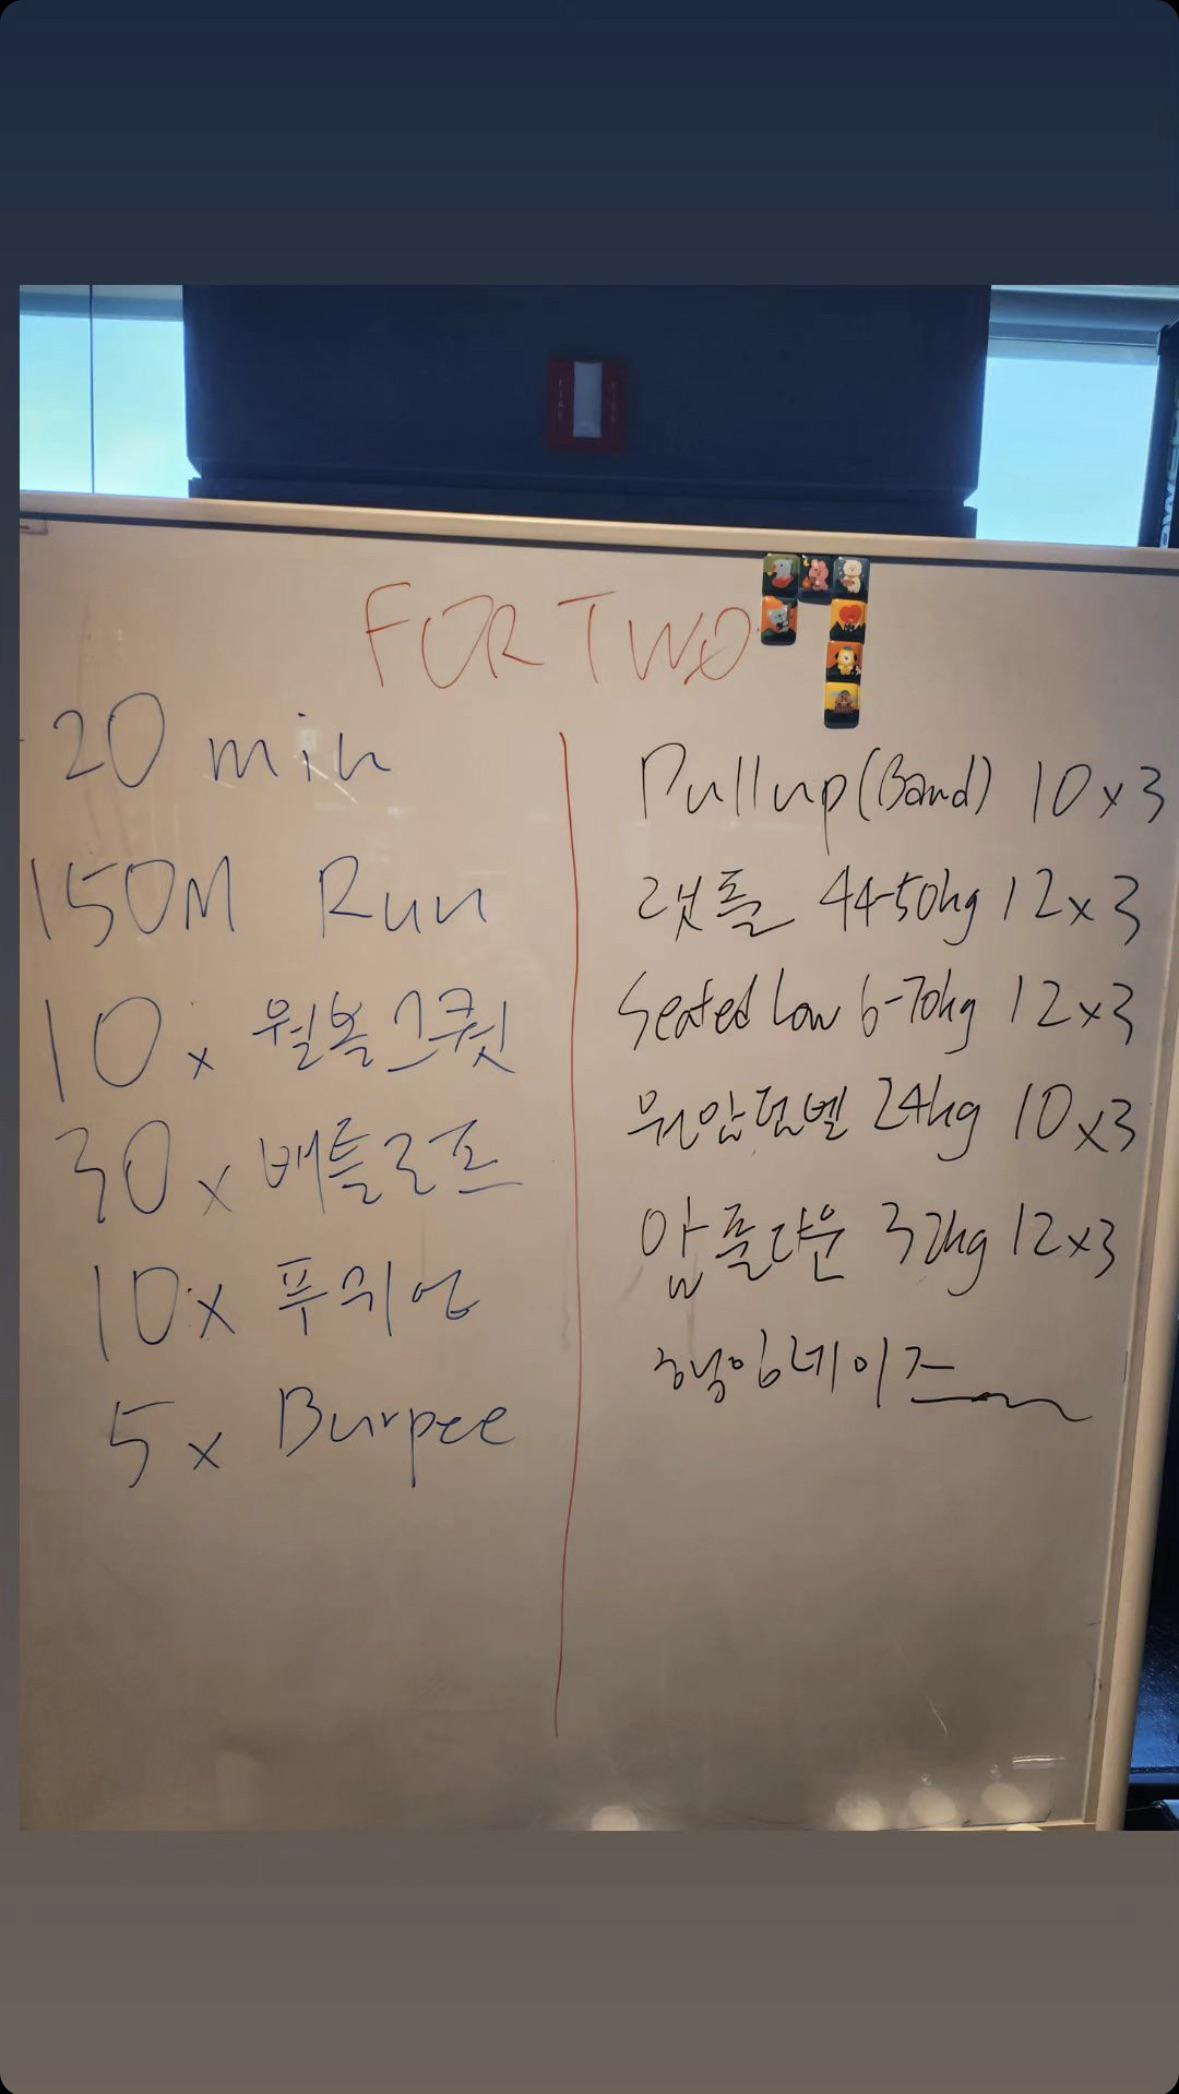 FOR TWO
20 min
150M Run
10x 월볼스쿼트
30x 배틀로프
10x 푸쉬업
5x Burpee
Pull up (Band) 10x3
랫풀 44-50kg 12x3
Seated Low 6-70kg 12x3
원암덤벨 24kg 10x3
암풀다운 32kg 12x3
행잉레이즈